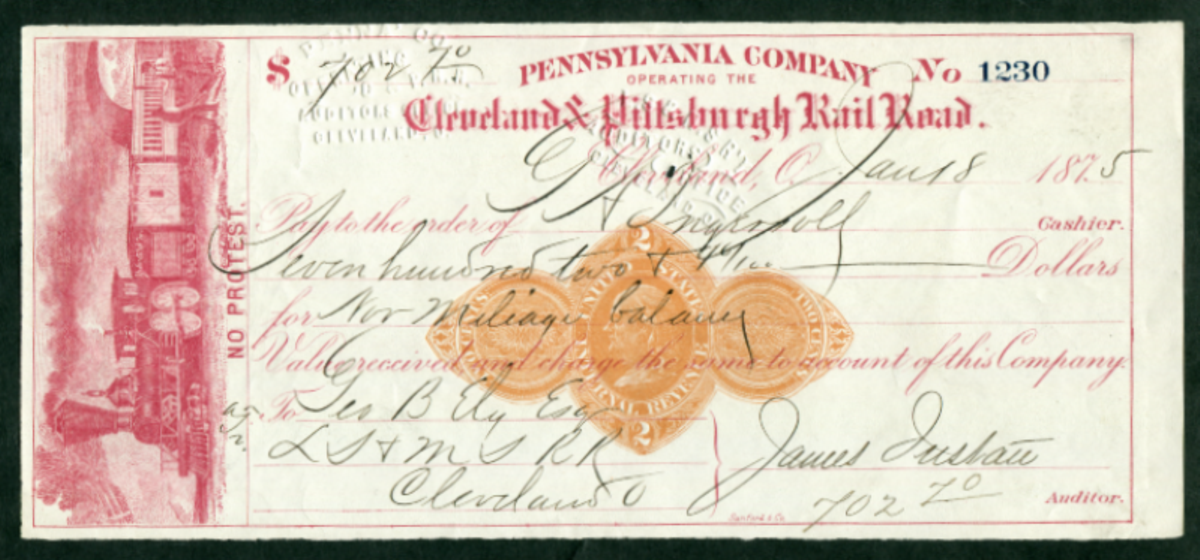 $ 702 70
PENNSYLVANIA COMPANY No 1230
OPERATING THE
Cleveland & Pittsburgh Rail Road.
Cleveland, O. Jan 18 1875
Pay to the order of G A Ingersoll Cashier.
Seven hundred two & 70/100 Dollars
for Nov Mileage balance
Value received and charge the same to account of this Company.
To Geo B Ely Esq
L S & M S R R
Cleveland O
James
702 70 Auditor.
NO PROTEST.
2
UNITED STATES
INTERNAL REVENUE
2
AUDITORS
CLEVELAND, O.